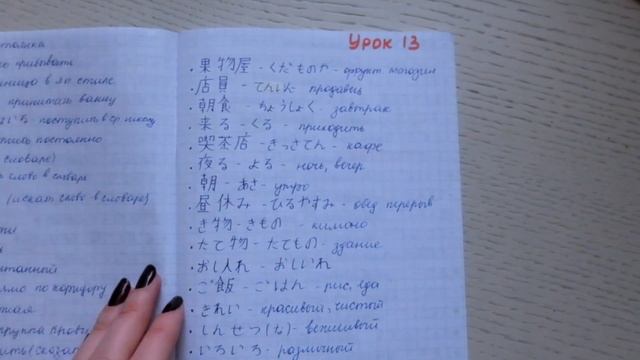 столика
привывать
ница в яп стиле
принимать ванну
поступить в ср. школу
постоянно
словаре)
слово в словаре
(искать слово в словаре)
по коридору
группа
Урок 13
・果物屋 - くだものや - фрукт магазин
・店員 - てんいん продавец
・朝食 - ちょうしょく - завтрак
・来る - くる - приходить
・喫茶店 - きっさてん - кафе
・夜る - よる - ночь, вечер
・朝 - あさ - утро
・昼休み - ひるやすみ - обед перерыв
・き物 - きもの - кимоно
・たて物 - たてもの - здание
・おし入れ - おしいれ
・ご飯 - ごはん - рис, еда
・きれい - красивый, чистый
・しんせつ(な) - вежливый
・いろいろ - различный